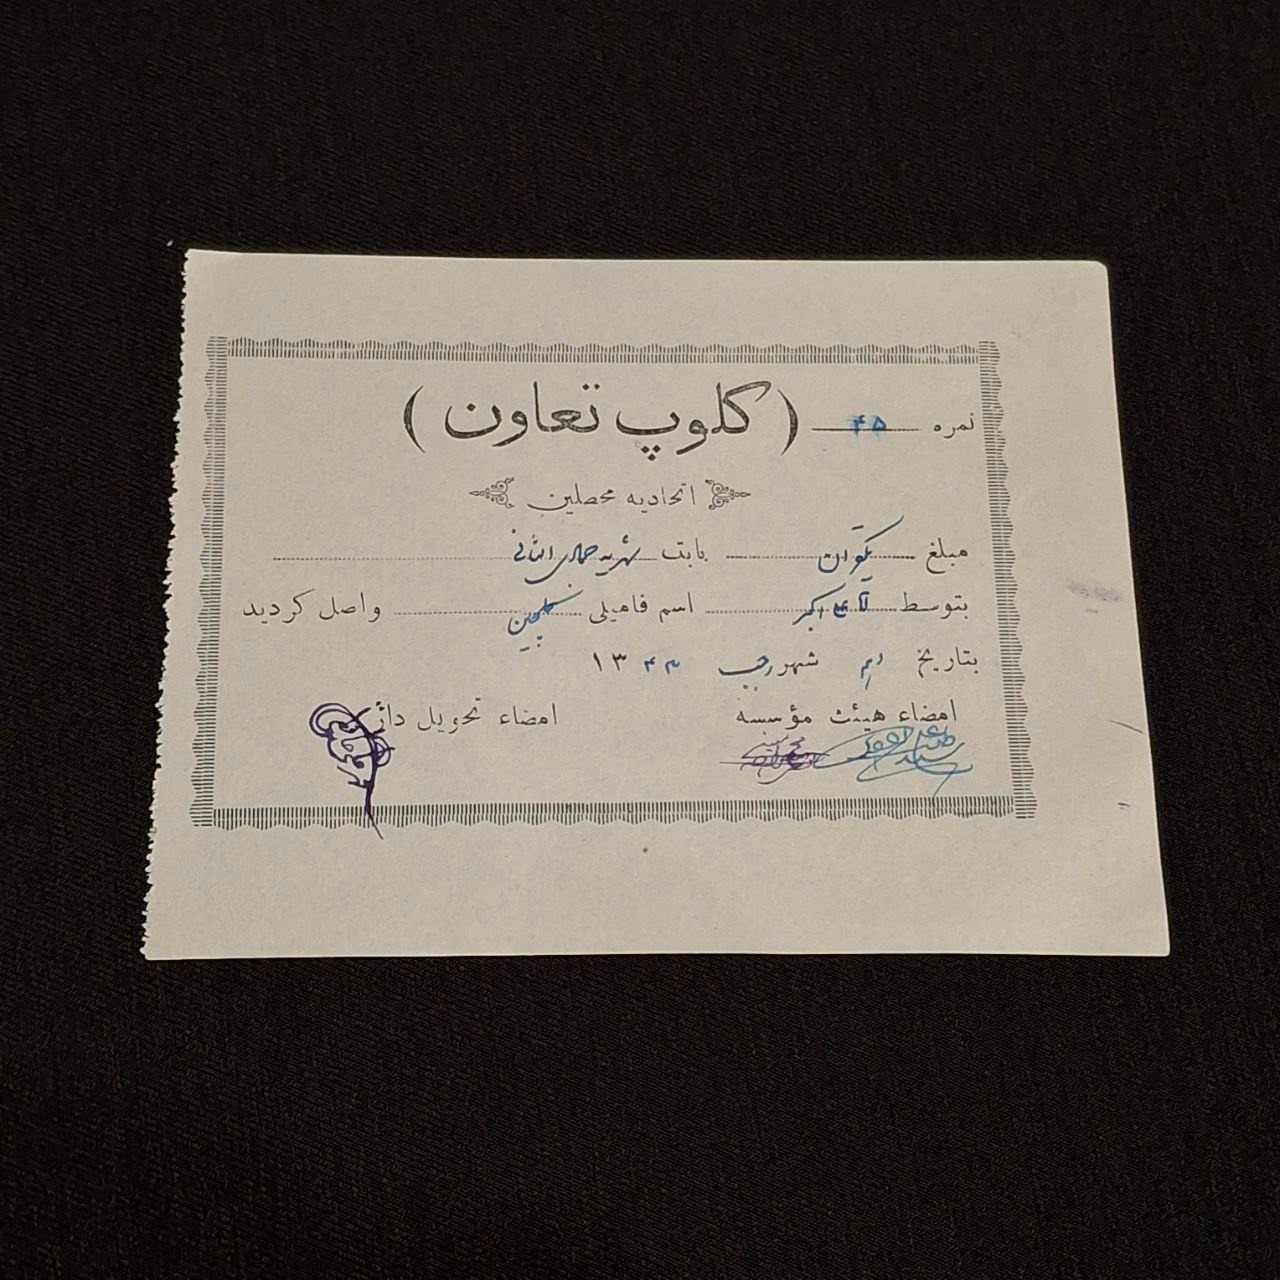 نمره ۴۵ ( کلوپ تعاون )
اتحادیه محصلین
مبلغ یکتومان بابت شهریه جمادی الثانی
بتوسط آقای اکبر اسم فامیلی گلچین واصل گردید
بتاریخ شهر رجب ۱۳۴۴
امضاء هیئت مؤسسه امضاء تحویل دار